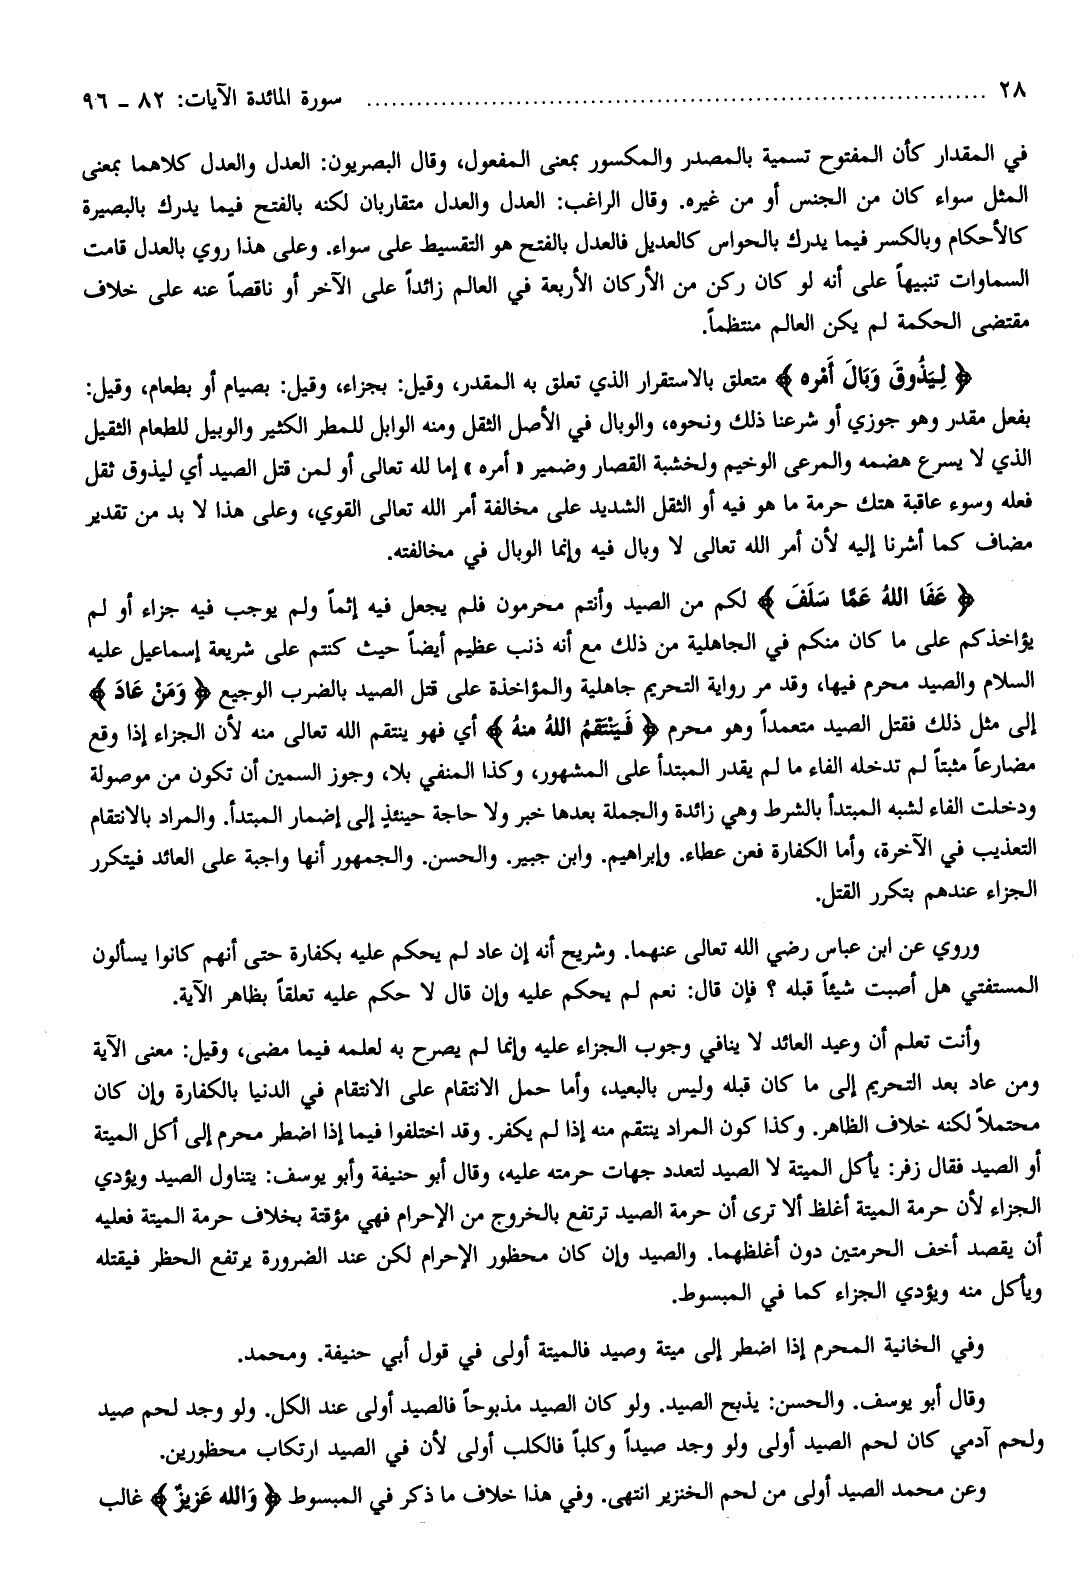 ٢٨ ........................................................................ سورة المائدة الآيات: ٨٢ ـ ٩٦
في المقدار كأن المفتوح تسمية بالمصدر والمكسور بمعنى المفعول، وقال البصريون: العدل والعدل كلاهما بمعنى
المثل سواء كان من الجنس أو من غيره. وقال الراغب: العدل والعدل متقاربان لكنه بالفتح فيما يدرك بالبصيرة
كالأحكام وبالكسر فيما يدرك بالحواس كالعديل فالعدل بالفتح هو التقسيط على سواء. وعلى هذا روي بالعدل قامت
السماوات تنبيهاً على أنه لو كان ركن من الأركان الأربعة في العالم زائداً على الآخر أو ناقصاً عنه على خلاف
مقتضى الحكمة لم يكن العالم منتظماً.
﴿ لِيَذُوقَ وَبَالَ أَمْرِه ﴾ متعلق بالاستقرار الذي تعلق به المقدر، وقيل: بجزاء، وقيل: بصيام أو بطعام، وقيل:
بفعل مقدر وهو جوزي أو شرعنا ذلك ونحوه، والوبال في الأصل الثقل ومنه الوابل للمطر الكثير والوبيل للطعام الثقيل
الذي لا يسرع هضمه والمرعى الوخيم ولخشبة القصار وضمير « أمره » إما لله تعالى أو لمن قتل الصيد أي ليذوق ثقل
فعله وسوء عاقبة هتك حرمة ما هو فيه أو الثقل الشديد على مخالفة أمر الله تعالى القوي، وعلى هذا لا بد من تقدير
مضاف كما أشرنا إليه لأن أمر الله تعالى لا وبال فيه وإنما الوبال في مخالفته.
﴿ عَفَا اللهُ عَمَّا سَلَفَ ﴾ لكم من الصيد وأنتم محرمون فلم يجعل فيه إثماً ولم يوجب فيه جزاء أو لم
يؤاخذكم على ما كان منكم في الجاهلية من ذلك مع أنه ذنب عظيم أيضاً حيث كنتم على شريعة إسماعيل عليه
السلام والصيد محرم فيها، وقد مر رواية التحريم جاهلية والمؤاخذة على قتل الصيد بالضرب الوجيع ﴿ وَمَنْ عَادَ ﴾
إلى مثل ذلك فقتل الصيد متعمداً وهو محرم ﴿ فَيَنْتَقِمُ اللهُ منهُ ﴾ أي فهو ينتقم الله تعالى منه لأن الجزاء إذا وقع
مضارعاً مثبتاً لم تدخله الفاء ما لم يقدر المبتدأ على المشهور، وكذا المنفي بلا، وجوز السمين أن تكون من موصولة
ودخلت الفاء لشبه المبتدأ بالشرط وهي زائدة والجملة بعدها خبر ولا حاجة حينئذٍ إلى إضمار المبتدأ. والمراد بالانتقام
التعذيب في الآخرة، وأما الكفارة فعن عطاء. وإبراهيم. وابن جبير. والحسن. والجمهور أنها واجبة على العائد فيتكرر
الجزاء عندهم بتكرر القتل.
وروي عن ابن عباس رضي الله تعالى عنهما. وشريح أنه إن عاد لم يحكم عليه بكفارة حتى أنهم كانوا يسألون
المستفتي هل أصبت شيئاً قبله ؟ فإن قال: نعم لم يحكم عليه وإن قال لا حكم عليه تعلقاً بظاهر الآية.
وأنت تعلم أن وعيد العائد لا ينافي وجوب الجزاء عليه وإنما لم يصرح به لعلمه فيما مضى، وقيل: معنى الآية
ومن عاد بعد التحريم إلى ما كان قبله وليس بالبعيد، وأما حمل الانتقام على الانتقام في الدنيا بالكفارة وإن كان
محتملاً لكنه خلاف الظاهر. وكذا كون المراد ينتقم منه إذا لم يكفر. وقد اختلفوا فيما إذا اضطر محرم إلى أكل الميتة
أو الصيد فقال زفر: يأكل الميتة لا الصيد لتعدد جهات حرمته عليه، وقال أبو حنيفة وأبو يوسف: يتناول الصيد ويؤدي
الجزاء لأن حرمة الميتة أغلظ ألا ترى أن حرمة الصيد ترتفع بالخروج من الإحرام فهي مؤقتة بخلاف حرمة الميتة فعليه
أن يقصد أخف الحرمتين دون أغلظهما. والصيد وإن كان محظور الإحرام لكن عند الضرورة يرتفع الحظر فيقتله
ويأكل منه ويؤدي الجزاء كما في المبسوط.
وفي الخانية المحرم إذا اضطر إلى ميتة وصيد فالميتة أولى في قول أبي حنيفة. ومحمد.
وقال أبو يوسف. والحسن: يذبح الصيد. ولو كان الصيد مذبوحاً فالصيد أولى عند الكل. ولو وجد لحم صيد
ولحم آدمي كان لحم الصيد أولى ولو وجد صيداً وكلباً فالكلب أولى لأن في الصيد ارتكاب محظورين.
وعن محمد الصيد أولى من لحم الخنزير انتهى. وفي هذا خلاف ما ذكر في المبسوط ﴿ وَالله عَزيزٌ ﴾ غالب